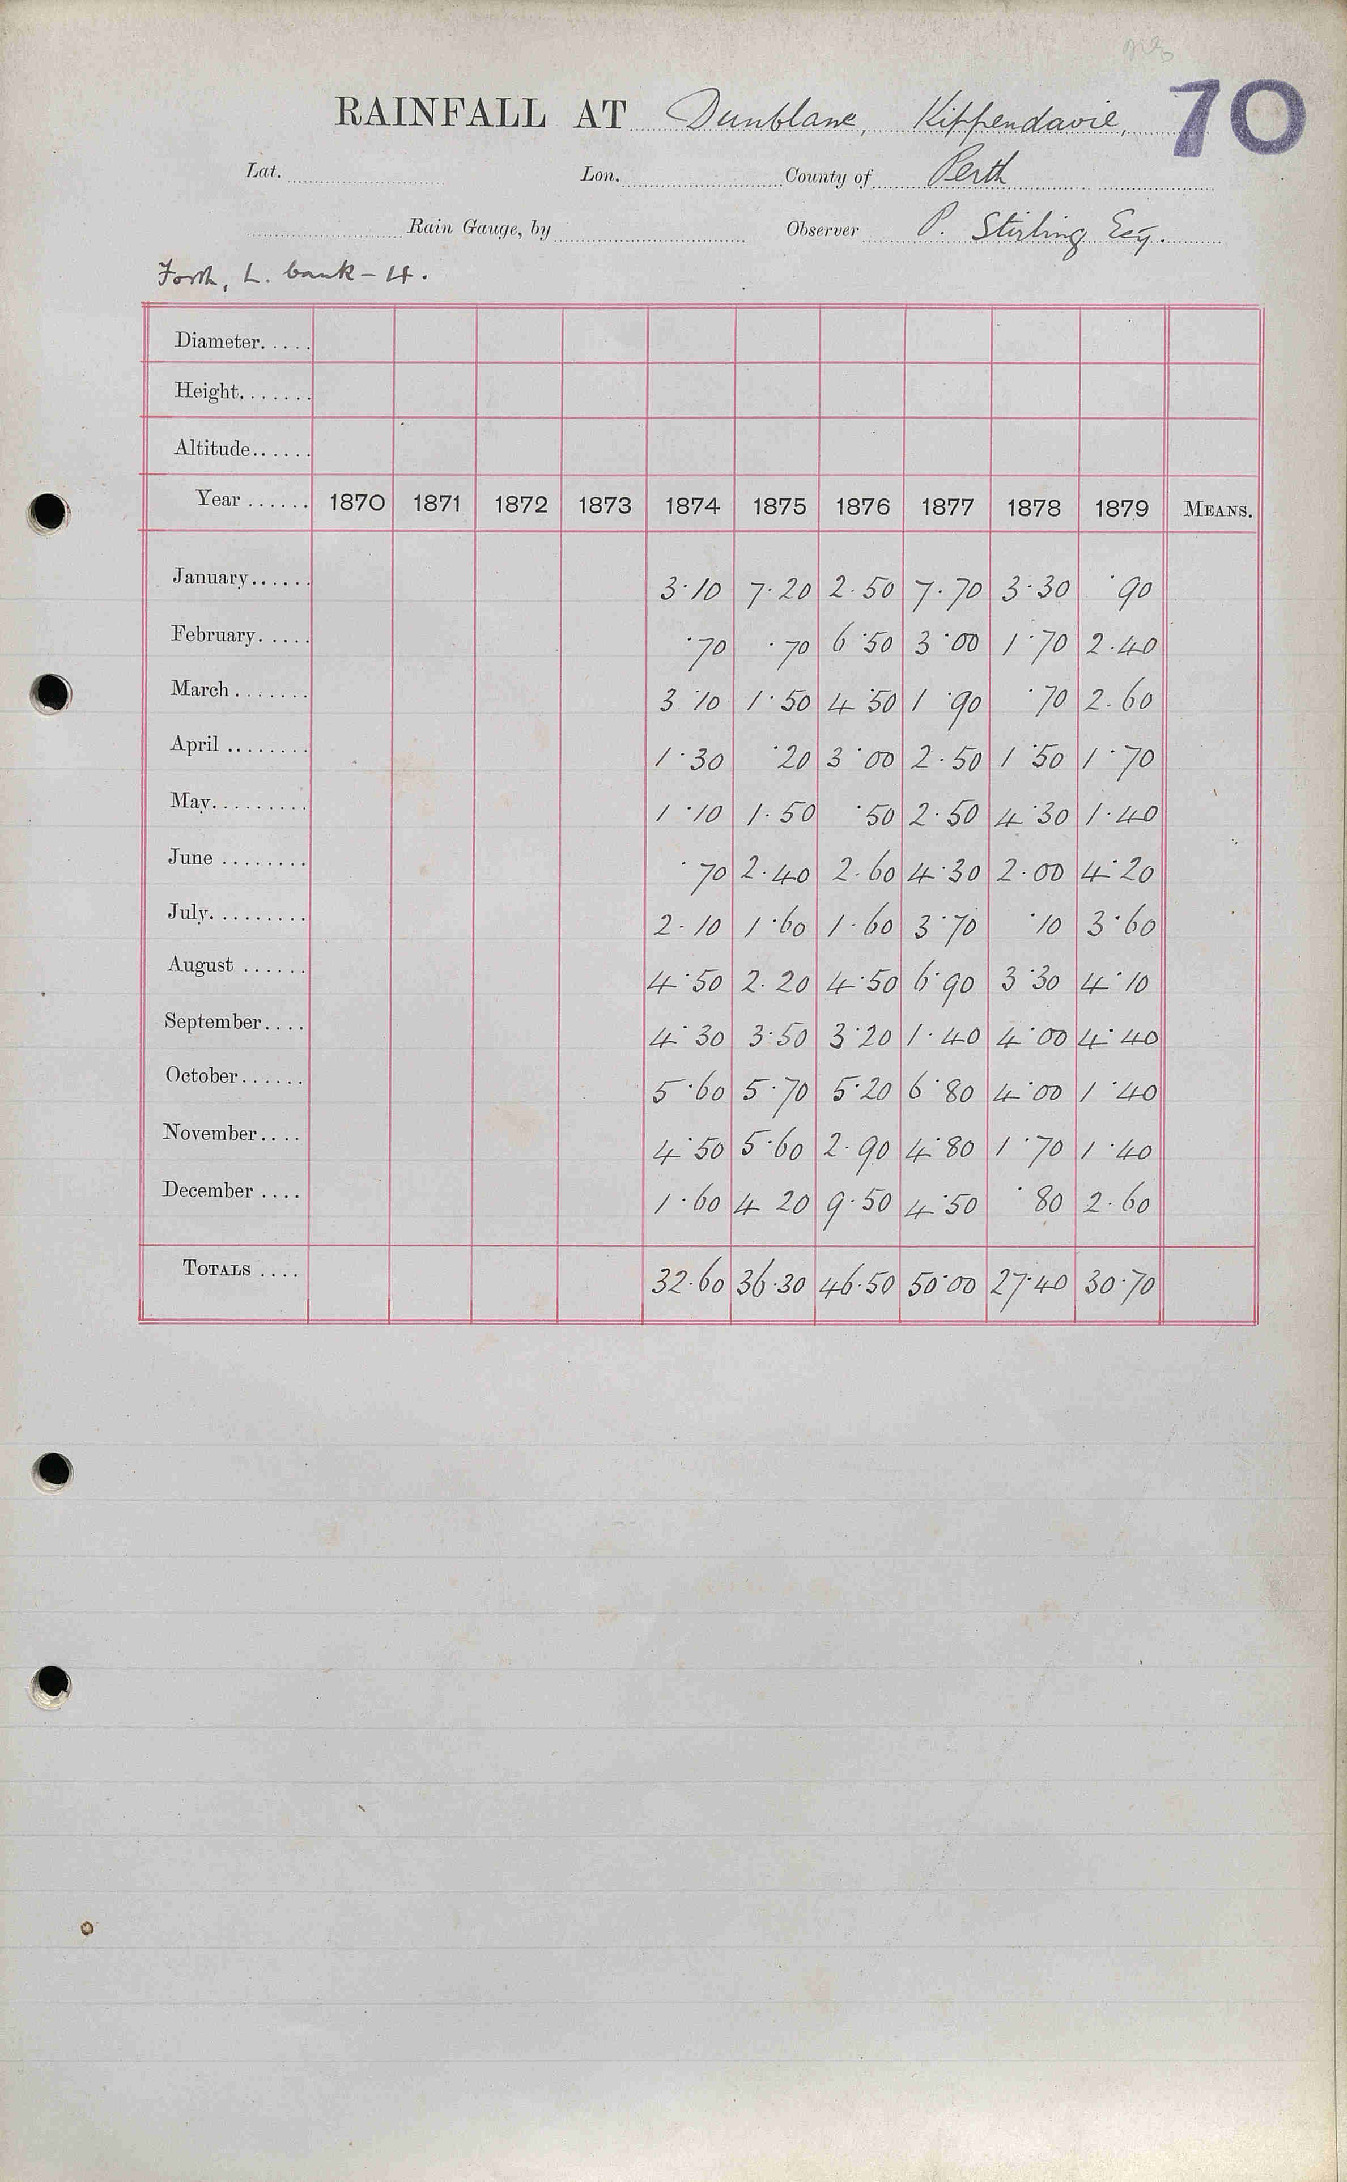 70
RAINFALL AT Dunblane, Kippendavie,
Lat. Lon. County of Perth
Rain Gauge, by Observer P. Stirling Esq.
Forth, L. bank - 4.
Diameter.....
Height.......
Altitude......
Year ...... 1870 1871 1872 1873 1874 1875 1876 1877 1878 1879 MEANS.
January...... 3·10 7·20 2·50 7·70 3·30 ·90
February..... ·70 ·70 6·50 3·00 1·70 2·40
March ....... 3·10 1·50 4·50 1·90 ·70 2·60
April ........ 1·30 ·20 3·00 2·50 1·50 1·70
May......... 1·10 1·50 ·50 2·50 4·30 1·40
June ........ ·70 2·40 2·60 4·30 2·00 4·20
July......... 2·10 1·60 1·60 3·70 ·10 3·60
August ...... 4·50 2·20 4·50 6·90 3·30 4·10
September.... 4·30 3·50 3·20 1·40 4·00 4·40
October...... 5·60 5·70 5·20 6·80 4·00 1·40
November.... 4·50 5·60 2·90 4·80 1·70 1·40
December .... 1·60 4 20 9·50 4·50 ·80 2·60
TOTALS .... 32·60 36·30 46·50 50·00 27·40 30·70